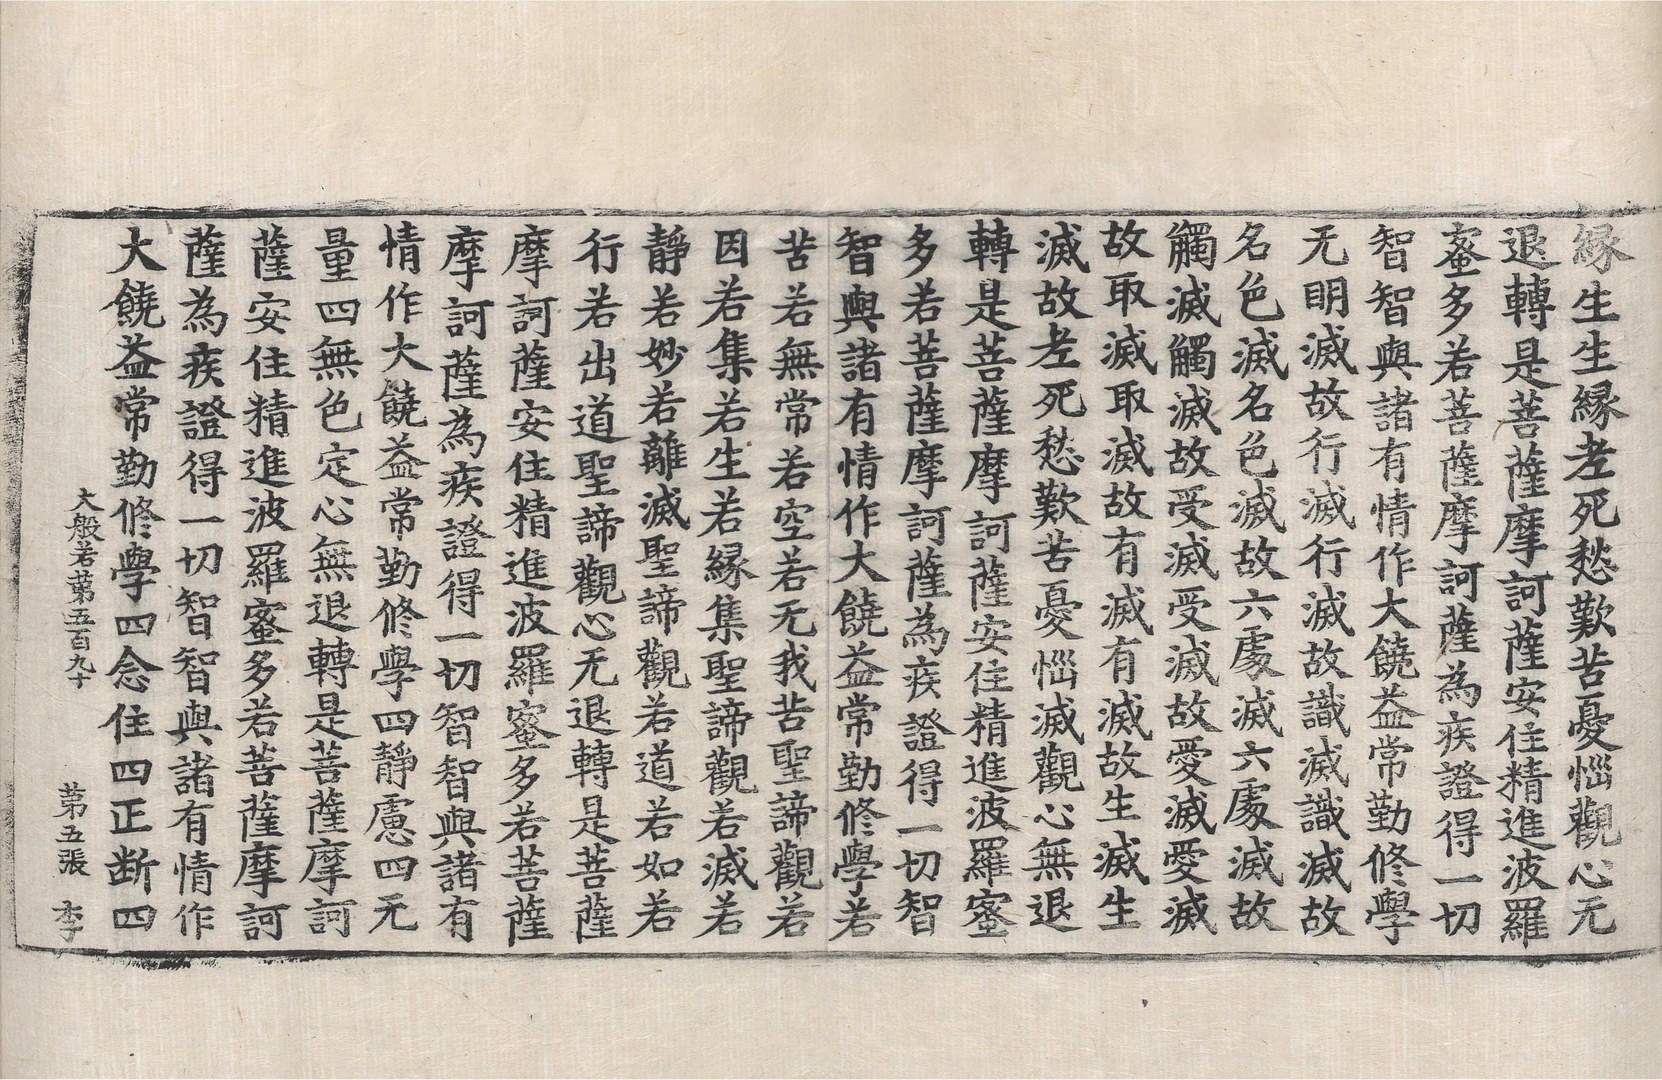 縁生生縁老死愁歎苦憂惱觀心无
退轉是菩薩摩訶薩安住精進波羅
蜜多若菩薩摩訶薩為疾證得一切
智智與諸有情作大饒益常勤修學
无明滅故行滅行滅故識滅識滅故
名色滅名色滅故六處滅六處滅故
觸滅觸滅故受滅受滅故愛滅愛滅
故取滅取滅故有滅有滅故生滅生
滅故老死愁歎苦憂惱滅觀心無退
轉是菩薩摩訶薩安住精進波羅蜜
多若菩薩摩訶薩為疾證得一切智
智與諸有情作大饒益常勤修學若
苦若無常若空若无我苦聖諦觀若
因若集若生若縁集聖諦觀若滅若
靜若妙若離滅聖諦觀若道若如若
行若出道聖諦觀心无退轉是菩薩
摩訶薩安住精進波羅蜜多若菩薩
摩訶薩為疾證得一切智智與諸有
情作大饒益常勤修學四靜慮四无
量四無色定心無退轉是菩薩摩訶
薩安住精進波羅蜜多若菩薩摩訶
薩為疾證得一切智智與諸有情作
大饒益常勤修學四念住四正断四
大般若第五百九十 第五張 李